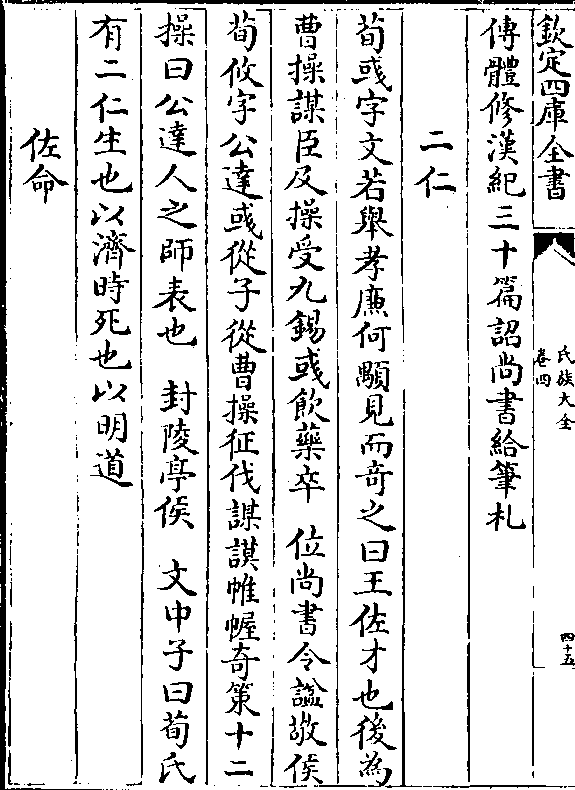 欽定四庫全書
氏族大全
卷四
四十五
傳體修漢紀三十篇詔尚書給筆札
二仁
荀彧字文若舉孝廉何顒見而奇之曰王佐才也後為
曹操謀臣及操受九錫彧飲藥卒 位尚書令諡敬侯
荀攸字公達彧從子從曹操征伐謀謨帷幄奇策十二
操曰公達人之師表也 封陵亭侯 文中子曰荀氏
有二仁生也以濟時死也以明道
佐命